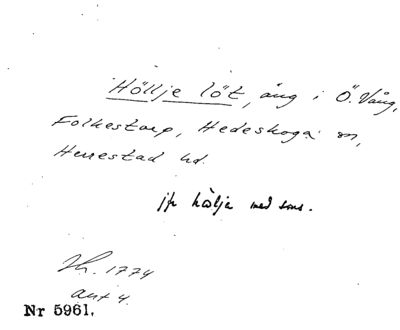 Höllje löt, äng i Ö. Vång,
Folkestorp, Hedeskoga sn,
Herrestad hd.
jfr hölja med sms.
Lh. 1774
akt 4.
Nr 5961.